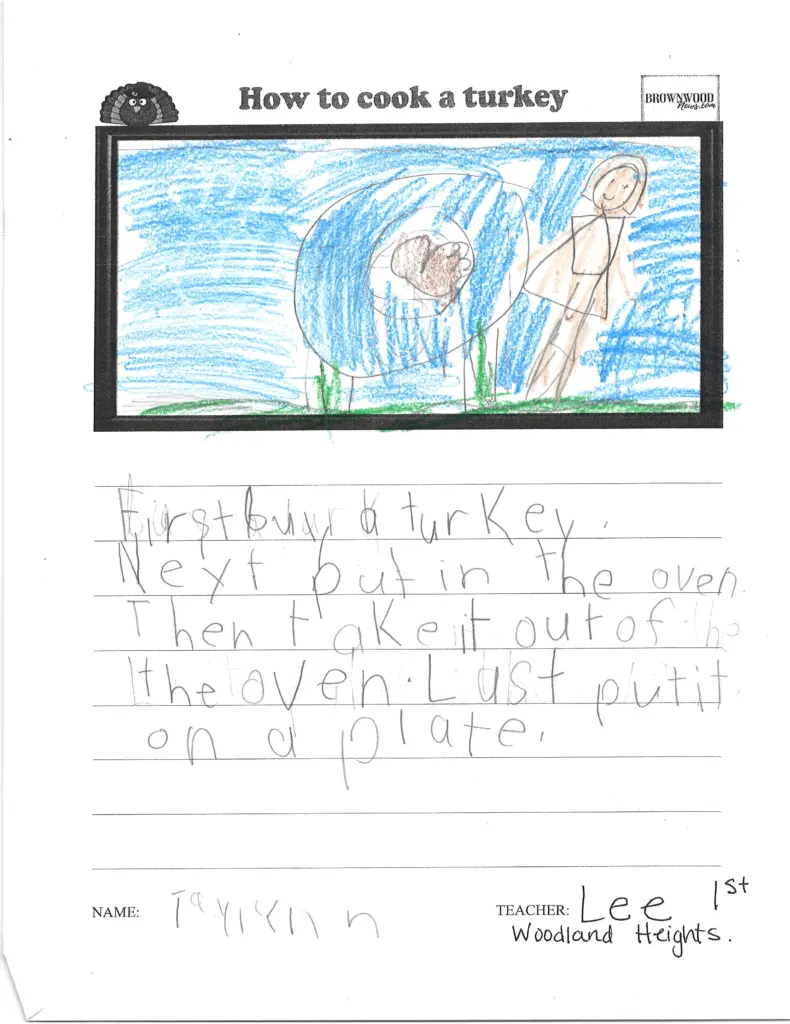 How to cook a turkey
BROWNWOOD
News.com
First buy a turkey.
Next put in the oven.
Then take it out of
the oven. Last put it
on a plate.
NAME:
TEACHER: Lee 1st
Woodland Heights.